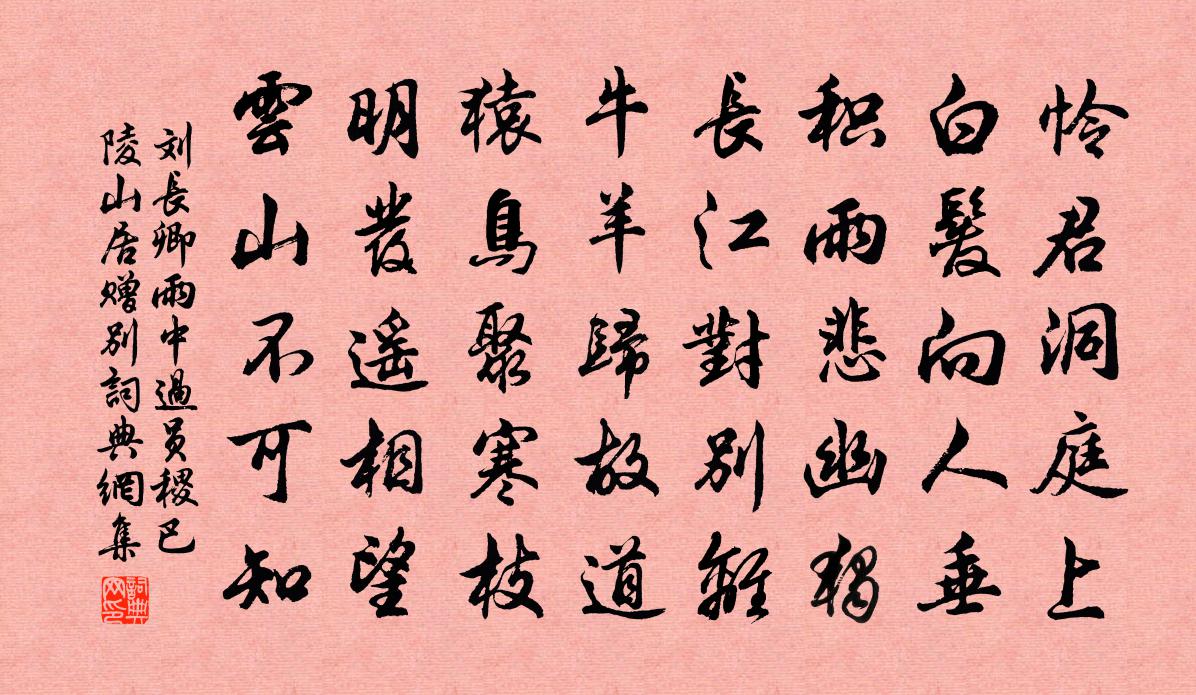 怜君洞庭上
白髮向人垂
积雨悲幽獨
長江對別離
牛羊歸故道
猿鳥聚寒枝
明發遥相望
雲山不可知
刘長卿雨中過员稷巴
陵山居赠別詞典網集
詞典网印